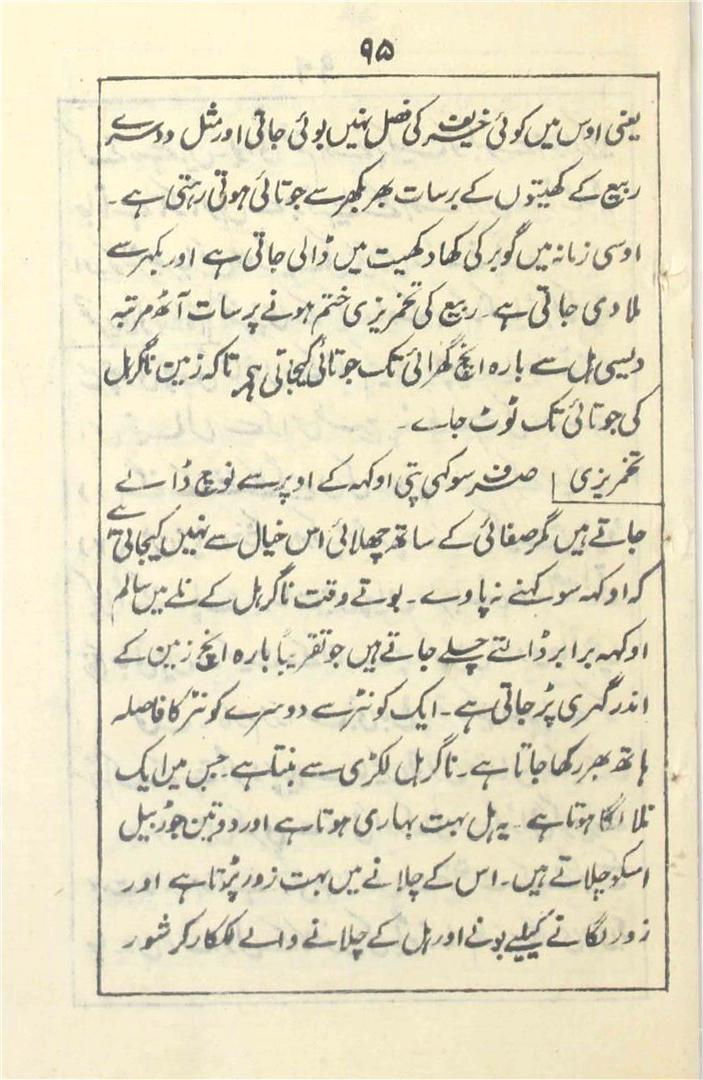 ۹۵
یعنی اوس میں کوئی خریف کی فصل نہیں بوئی جاتی اور مثل دوسرے
ربیع کے کھیتوں کے برسات بھر بکھر سے جوتائی ہوتی رہتی ہے۔
اوسی زمانہ میں گوبر کی کھاد کھیت میں ڈالی جاتی ہے اور بکہر سے
ملا دی جاتی ہے۔ ربیع کی تخمریزی ختم ہونے پر سات آٹھ مرتبہ
دیسی ہل سے بارہ انچ گہرائی تک جوتائی کیجاتی ہے تاکہ زمین ناگرہل
کی جوتائی تک ٹوٹ جاے۔
تخمریزی | صرف سوکہی پتی اوکہہ کے اوپر سے نوچ ڈالے
جاتے ہیں مگر صفائی کے ساتھ چھلائی اس خیال سے نہیں کیجاتی ہے
کہ اوکہہ سوکہنے نہ پاوے۔ بوتے وقت ناگرہل کے نلے میں سالم
اوکہہ برابر ڈالتے چلے جاتے ہیں جو تقریباً بارہ انچ زمین کے
اندر گہری پڑ جاتی ہے۔ ایک کونڑ سے دوسرے کونڑ کا فاصلہ
ہاتھ بھر رکھا جاتا ہے۔ ناگرہل لکڑی سے بنتا ہے جس میں ایک
نلا لگا ہوتا ہے۔ یہ ہل بہت بہاری ہوتا ہے اور دو تین جوڑ بیل
اسکو چلاتے ہیں۔ اس کے چلانے میں بہت زور پڑتا ہے اور
زور لگانے کیلیے بونے اور ہل کے چلانے والے للکار کر شور